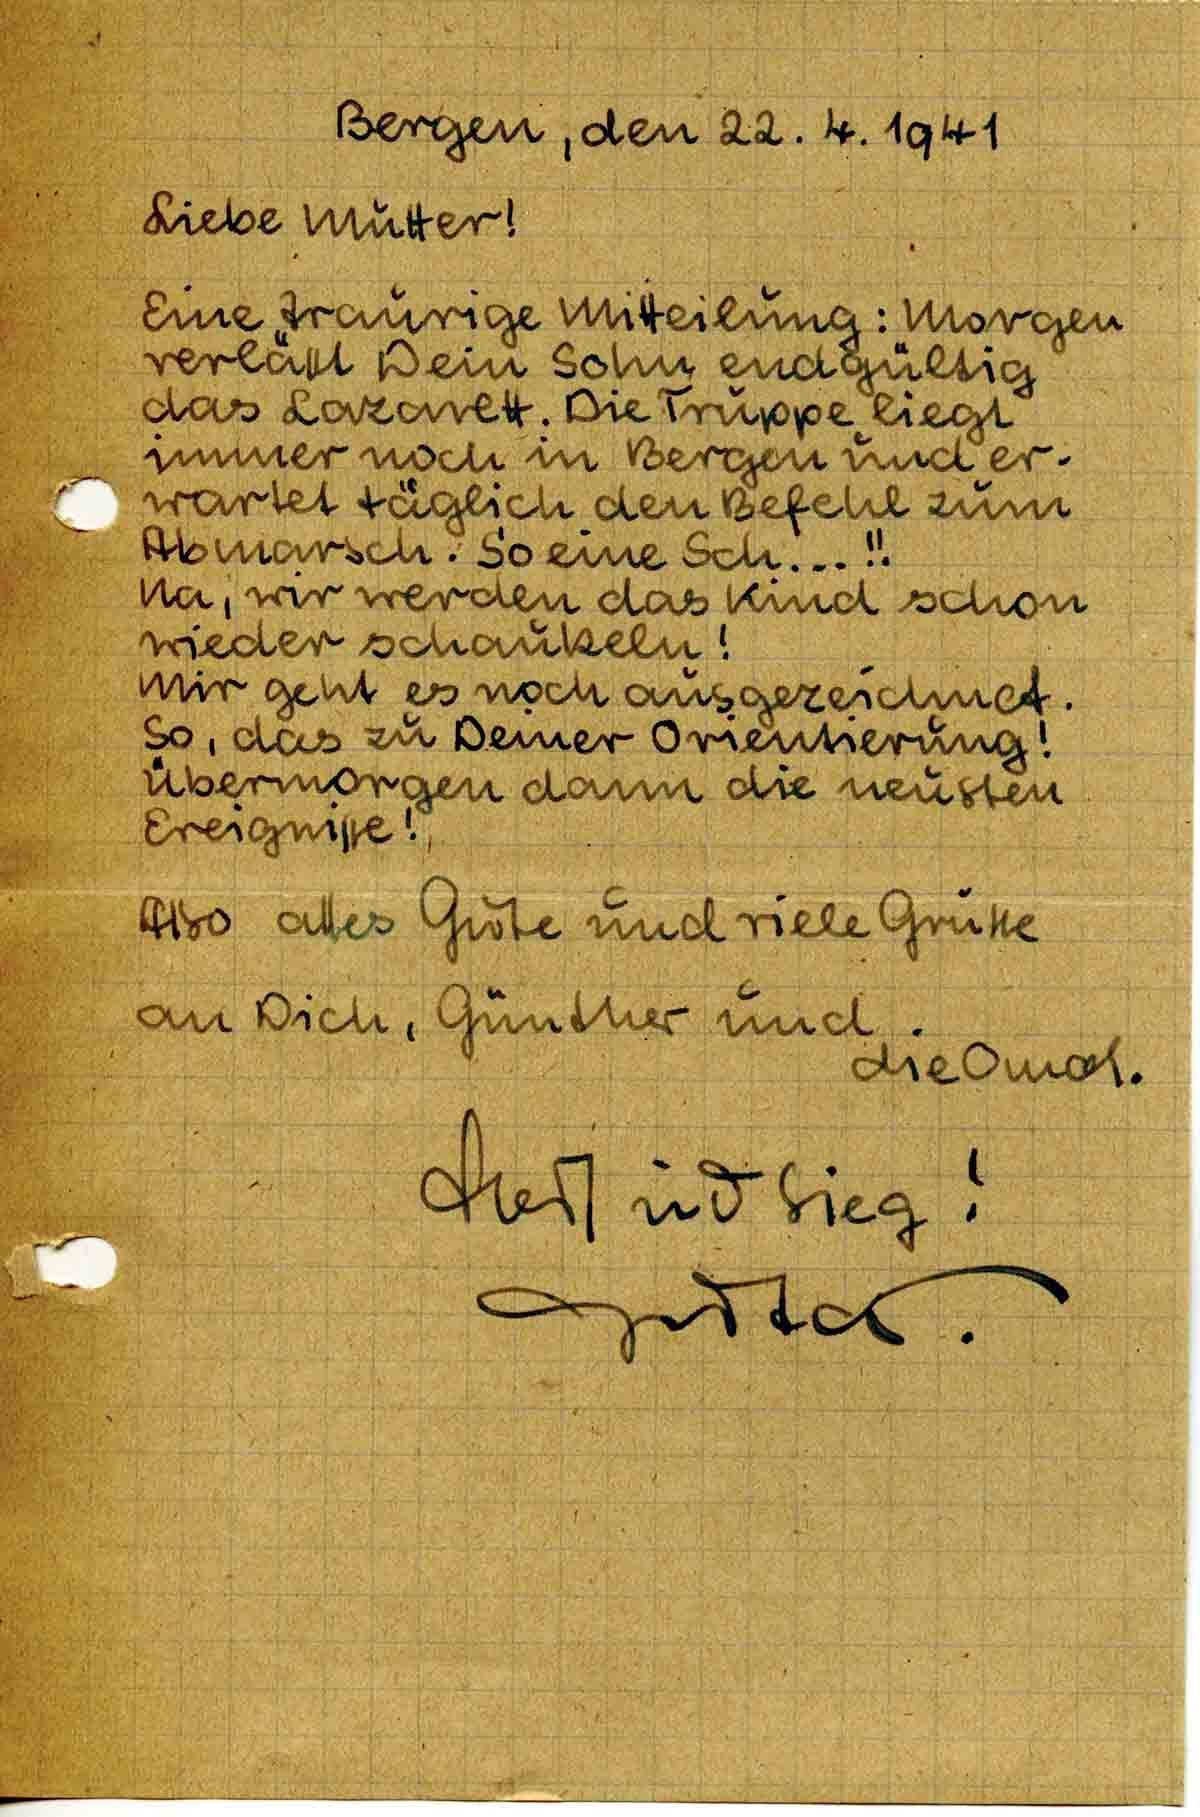 Bergen, den 22. 4. 1941
Liebe Mutter!
Eine traurige Mitteilung: Morgen
verläßt Dein Sohn endgültig
das Lazarett. Die Truppe liegt
immer noch in Bergen und er-
wartet täglich den Befehl zum
Abmarsch. So eine Sch...!!
Na, wir werden das Kind schon
wieder schaukeln!
Mir geht es noch ausgezeichnet.
So, das zu Deiner Orientierung!
Übermorgen dann die neusten
Ereignisse!
Also alles Gute und viele Grüße
an Dich, Günther und
die Omas.
Heil und Sieg!